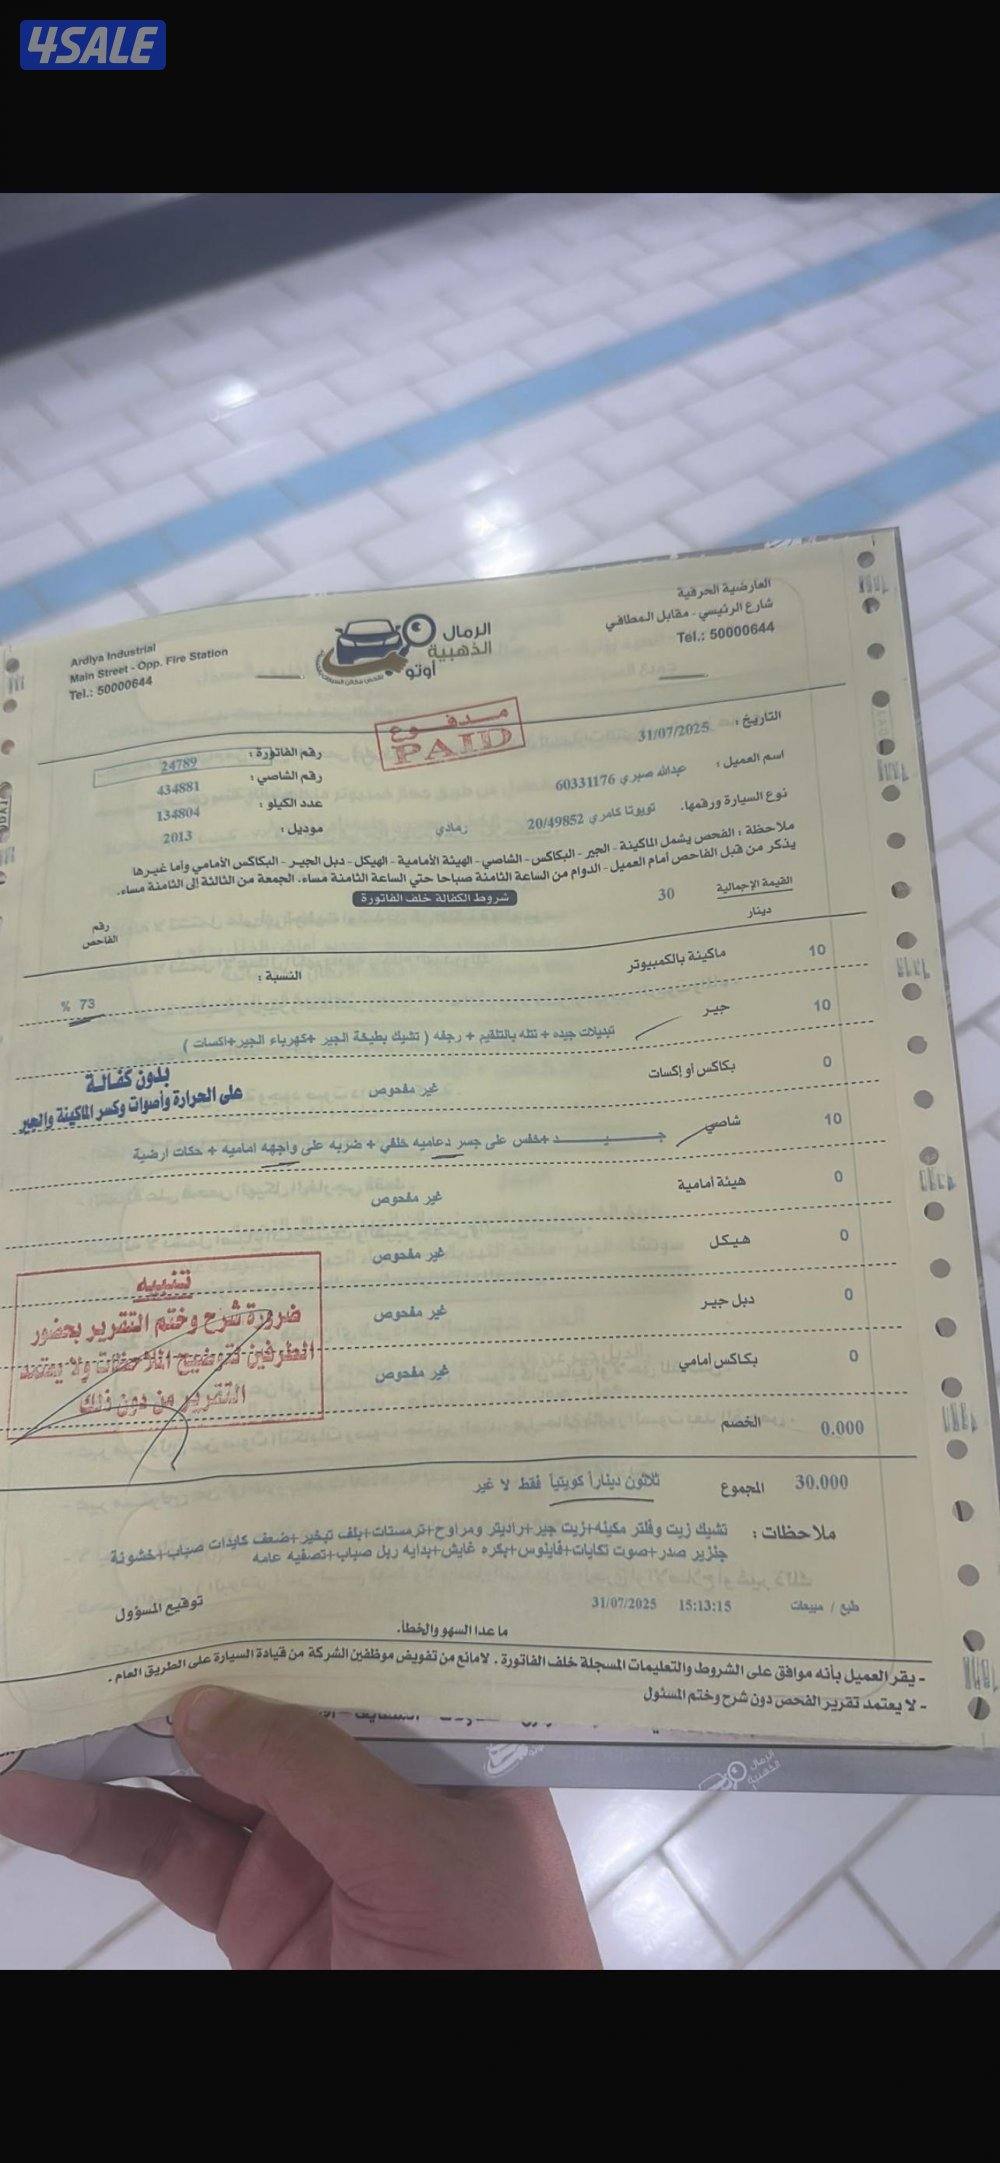 4SALE
العارضية الحرفية
شارع الرئيسي - مقابل المطافي
Tel.: 50000644
الرمال
الذهبية
أوتو
Ardiya Industrial
Main Street - Opp. Fire Station
Tel.: 50000644
مدفوع
PAID
التاريخ : 31/07/2025
رقم الفاتورة : 24789
اسم العميل : عبدالله صبري 60331176
رقم الشاصي : 434881
نوع السيارة ورقمها. تويوتا كامري 20/49852 رمادي
عدد الكيلو : 134804
موديل : 2013
ملاحظة : الفحص يشمل الماكينة - الجير - البكاكس - الشاصي - الهيئة الأمامية - الهيكل - دبل الجير - البكاكس الأمامي وأما غيرها
يذكر من قبل الفاحص أمام العميل - الدوام من الساعة الثامنة صباحا حتي الساعة الثامنة مساء. الجمعة من الثالثة إلى الثامنة مساء.
شروط الكفالة خلف الفاتورة
القيمة الإجمالية 30
دينار
رقم
الفاحص
10 ماكينة بالكمبيوتر النسبة : 73 %
10 جير تبديلات جيده + نتله بالتلقيم + رجفه ( تشيك بطيخة الجير +كهرباء الجير+اكسات )
0 بكاكس أو إكسات غير مفحوص
بدون كفالة
على الحرارة وأصوات وكسر الماكينة والجير
10 شاصي جيد +خفس على جسر دعاميه خلفي + ضربه على واجهه اماميه + حكات ارضية
0 هيئة أمامية غير مفحوص
0 هيكل غير مفحوص
0 دبل جير غير مفحوص
0 بكاكس أمامي غير مفحوص
تنبيه
ضرورة شرح وختم التقرير بحضور
الطرفين لتوضيح الملاحظات ولا يعتمد
التقرير من دون ذلك
0.000 الخصم
30.000 المجموع ثلاثون ديناراً كويتياً فقط لا غير
ملاحظات : تشيك زيت وفلتر مكينه+زيت جير+راديتر ومراوح+ترمستات+بلف تبخير+ضعف كايدات صباب+خشونة
جنزير صدر+صوت تكايات+فايلوس+بكره غايش+بدايه ربل صباب+تصفيه عامه
طبع / مبيعات 15:13:15 31/07/2025
توقيع المسؤول
ما عدا السهو والخطأ.
- يقر العميل بأنه موافق على الشروط والتعليمات المسجلة خلف الفاتورة . لامانع من تفويض موظفين الشركة من قيادة السيارة على الطريق العام .
- لا يعتمد تقرير الفحص دون شرح وختم المسئول
الرمال
الذهبية